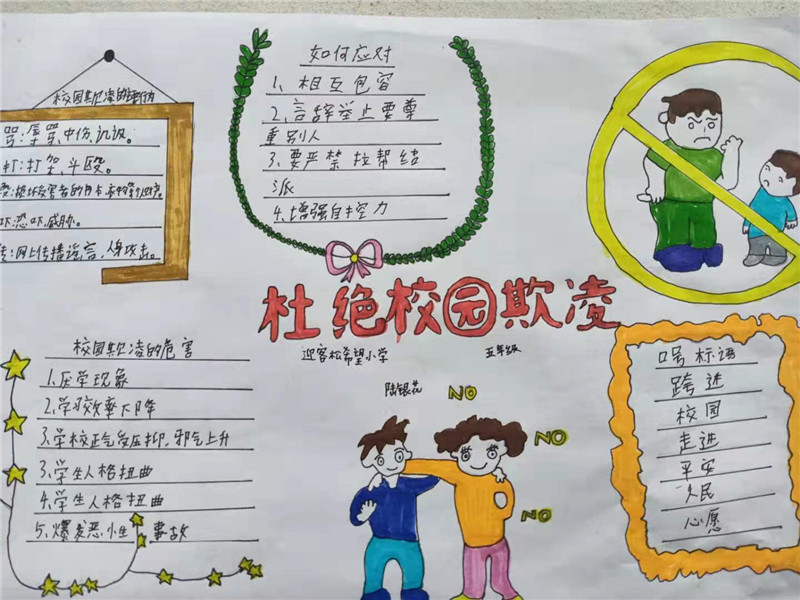 校园欺凌的
骂:辱骂、中伤、讥讽。
打:打架、斗殴。
吓:恐吓、威胁。
传:网上传播谣言,人身攻击。
如何应对
1、相互包容
2、言辞举止要尊
重别人
3、要严禁拉帮结
派
4、增强自控力
杜绝校园欺凌
迎客松希望小学 五年级
陆银花
NO
NO
NO
校园欺凌的危害
1、厌学现象
2、学习效率下降
3、学校正气受压抑,邪气上升
3、学生人格扭曲
4、学生人格扭曲
5、爆发恶性事故
口号标语
跨进
校园
走进
平安
人民
心愿